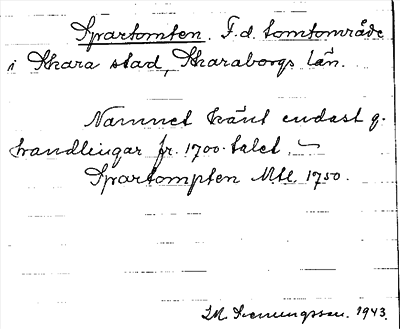 Spartomten. F.d. tomtområde
i Skara stad, Skaraborgs län.
Namnet känt endast g.
handlingar fr. 1700-talet. ~
Spartompten Mtl. 1750.
1943.